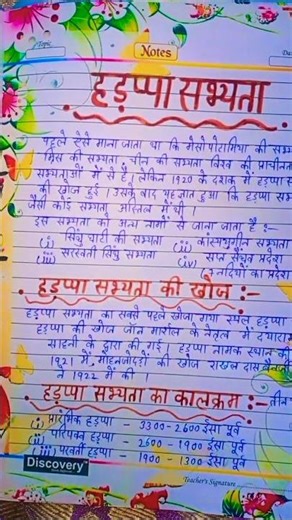 Topic
Notes
Da
हड़प्पा सभ्यता
पहले ऐसे माना जाता था कि मेसोपोटामिया की सभ्य
मिस्र की सभ्यता, चीन की सभ्यता विश्व की प्राचीनत
सभ्यताओं में से है। लेकिन 1920 के दशक में हड़प्पा स
की खोज हुई। उसके बाद यह ज्ञात हुआ कि हड़प्पा सभ
जैसी कोई सभ्यता अस्तित्व में थी।
इस सभ्यता को अन्य नामों से जाना जाता है :-
(i) सिंधु घाटी की सभ्यता (ii) कांस्ययुगीन सभ्यता
(iii) सरस्वती सिंधु सभ्यता (iv) सप्त सैंधव प्रदेश
नदियों का प्रदेश
हड़प्पा सभ्यता की खोज :-
हड़प्पा सभ्यता का सबसे पहले खोजा गया स्थल हड़प्पा
हड़प्पा की खोज जॉन मार्शल के नेतृत्व में दयारा
साहनी के द्वारा की गई। हड़प्पा नामक स्थान की
1921 में, मोहनजोदड़ो की खोज राखल दास
ने 1922 में की।
हड़प्पा सभ्यता का कालक्रम :- तीन
(i) प्रारंभिक हड़प्पा - 3300-2600 ईसा पूर्व
(ii) परिपक्व हड़प्पा - 2600 - 1900 ईसा पूर्व
(iii) परवर्ती हड़प्पा - 1900 - 1300 ईसा पूर्व
Discovery
Teacher's Signature